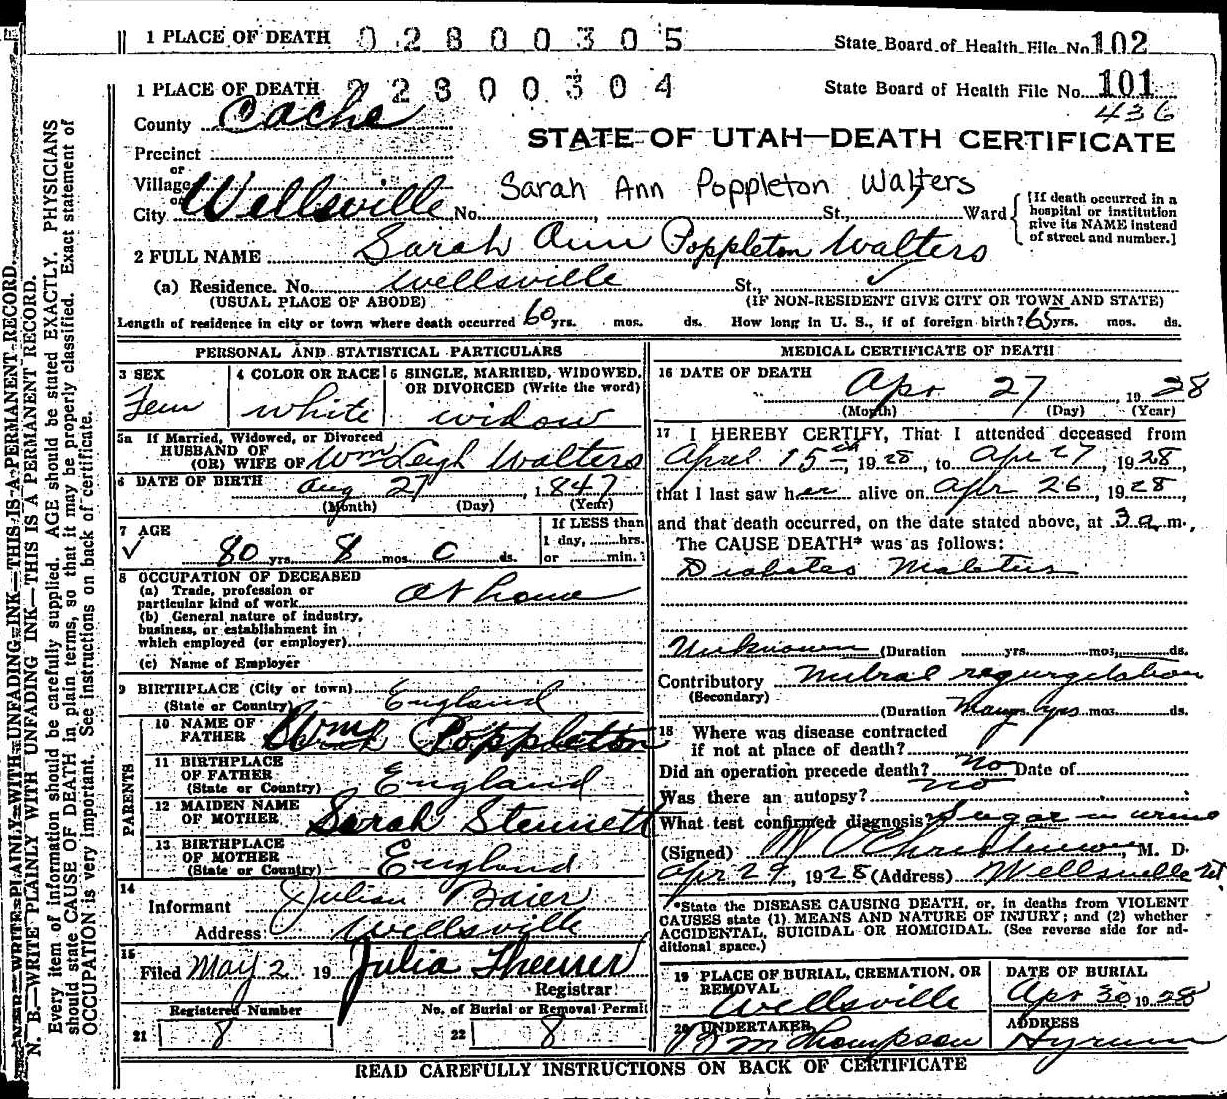 1 PLACE OF DEATH 0 2 8 0 0 3 0 5 State Board of Health File No. 102
1 PLACE OF DEATH 2 2 8 0 0 3 0 4 State Board of Health File No. 101
436
County Cache
STATE OF UTAH—DEATH CERTIFICATE
Precinct
or
Village
or
Sarah Ann Poppleton Walters
City Wellsville No. , St., Ward
[If death occurred in a hospital or institution give its NAME instead of street and number.]
2 FULL NAME Sarah Ann Poppleton Walters
(a) Residence. No. Wellsville St., ✓
(USUAL PLACE OF ABODE) (IF NON-RESIDENT GIVE CITY OR TOWN AND STATE)
Length of residence in city or town where death occurred 60 yrs. mos. ds. How long in U. S., if of foreign birth? 65 yrs. mos. ds.
PERSONAL AND STATISTICAL PARTICULARS
3 SEX 4 COLOR OR RACE 5 SINGLE, MARRIED, WIDOWED, OR DIVORCED (Write the word)
Fem white widow
5a If Married, Widowed, or Divorced
HUSBAND OF
(OR) WIFE OF Wm Leigh Walters
6 DATE OF BIRTH Aug 27, 1847
(Month) (Day) (Year)
7 AGE If LESS than
✓ 1 day, hrs.
80 yrs. 8 mos. 0 ds. or min.?
8 OCCUPATION OF DECEASED
(a) Trade, profession or
particular kind of work At home
(b) General nature of industry,
business, or establishment in
which employed (or employer)
(c) Name of Employer
9 BIRTHPLACE (City or town)
(State or Country) England
PARENTS
10 NAME OF
FATHER Wm Poppleton
11 BIRTHPLACE
OF FATHER
(State or Country) England
12 MAIDEN NAME
OF MOTHER Sarah Stennett
13 BIRTHPLACE
OF MOTHER
(State or Country) England
14
Informant Baier
Address Wellsville
15
Filed May 2 19 Julia Theurer
Registrar
Registered Number No. of Burial or Removal Permit
21 8 22 8
MEDICAL CERTIFICATE OF DEATH
16 DATE OF DEATH
Apr 27, 1928
(Month) (Day) (Year)
17 I HEREBY CERTIFY, That I attended deceased from
April 15th, 1928, to Apr 27, 1928,
that I last saw her alive on Apr 26, 1928,
and that death occurred, on the date stated above, at 3 a.m.,
The CAUSE DEATH* was as follows:
Diabetes Meletus
Unknown (Duration yrs. mos. ds.
Contributory Mitral regurgitation
(Secondary)
(Duration Many yrs mos. ds.
18 Where was disease contracted
if not at place of death?
Did an operation precede death? No Date of
Was there an autopsy? no
What test confirmed diagnosis Sugar in urine
(Signed) , M. D.
Apr 29, 1928 (Address) Wellsville Ut
*State the DISEASE CAUSING DEATH, or, in deaths from VIOLENT
CAUSES state (1) MEANS AND NATURE OF INJURY; and (2) whether
ACCIDENTAL, SUICIDAL OR HOMICIDAL. (See reverse side for additional space.)
19 PLACE OF BURIAL, CREMATION, OR REMOVAL DATE OF BURIAL
Wellsville Apr 30 1928
20 UNDERTAKER ADDRESS
Thompson Hyrum
READ CAREFULLY INSTRUCTIONS ON BACK OF CERTIFICATE
N. B.—WRITE PLAINLY WITH UNFADING INK—THIS IS A PERMANENT RECORD.
Every item of information should be carefully supplied. AGE should be stated EXACTLY. PHYSICIANS
should state CAUSE OF DEATH in plain terms, so that it may be properly classified. Exact statement of
OCCUPATION is very important. See instructions on back of certificate.